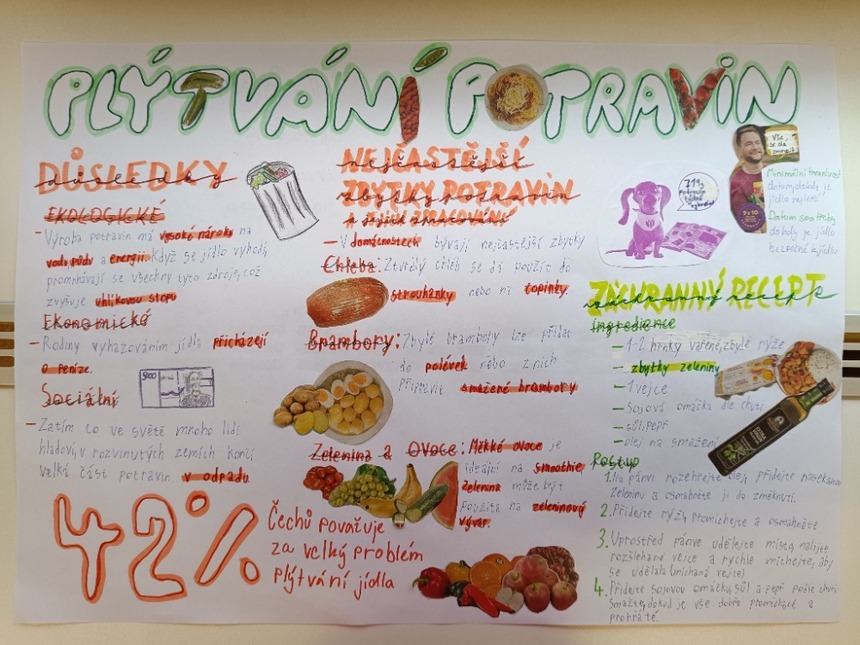 PLÝTVÁNÍ POTRAVIN
DŮSLEDKY
důsledky
EKOLOGICKÉ
- Výroba potravin má vysoké nároky na
vodu, půdu a energii. Když se jídlo vyhodí,
promrhávají se všechny tyto zdroje, což
zvyšuje uhlíkovou stopu
Ekonomické
- Rodiny vyhazováním jídla přicházejí
o peníze.
Sociální
- Zatím co ve světě mnoho lidí
hladoví, v rozvinutých zemích končí
velká část potravin v odpadu
42%
Čechů považuje
za velký problém
plýtvání jídla
NEJČASTĚJŠÍ
nejčastější
ZBYTKY POTRAVIN
zbytky potravin
a jejich zpracování
- V domácnostech bývají nejčastější zbytky
Chleba: Ztvrdlý chleb se dá použít do
strouhanky nebo na topinky.
Brambory: Zbylé brambory lze přidat
do polévek nebo z nich
připravit smažené brambory
Zelenina a Ovoce: Měkké ovoce je
ideální na smoothie,
zelenina může být
použita na zeleninový
vývar.
Vše,
se dá
Minimální trvanlivost
datum, do kdy je
jídlo nejlepší
Datum spotřeby
do kdy je jídlo
bezpečné k jídlu
ZÁCHRANNÝ RECEPT
záchranný recept
ingredience
- 1-2 hrnky vařené, zbylé rýže
- zbytky zeleniny
- 1 vejce
- sojová omáčka dle chuti
- sůl, pepř
- olej na smažení
Postup
1. Na pánvi rozehřejte olej, přidejte nasekanou
zeleninu a osmahněte ji do změknutí.
2. Přidejte rýži, promíchejte a osmahněte
3. Uprostřed pánve udělejte místo, nalijte
rozšlehané vejce a rychle míchejte, aby
se udělala (míchaná vejce)
4. Přidejte sojovou omáčku, sůl a pepř podle chuti
Smažte, dokud je vše dobře promíchané a
prohřáté.